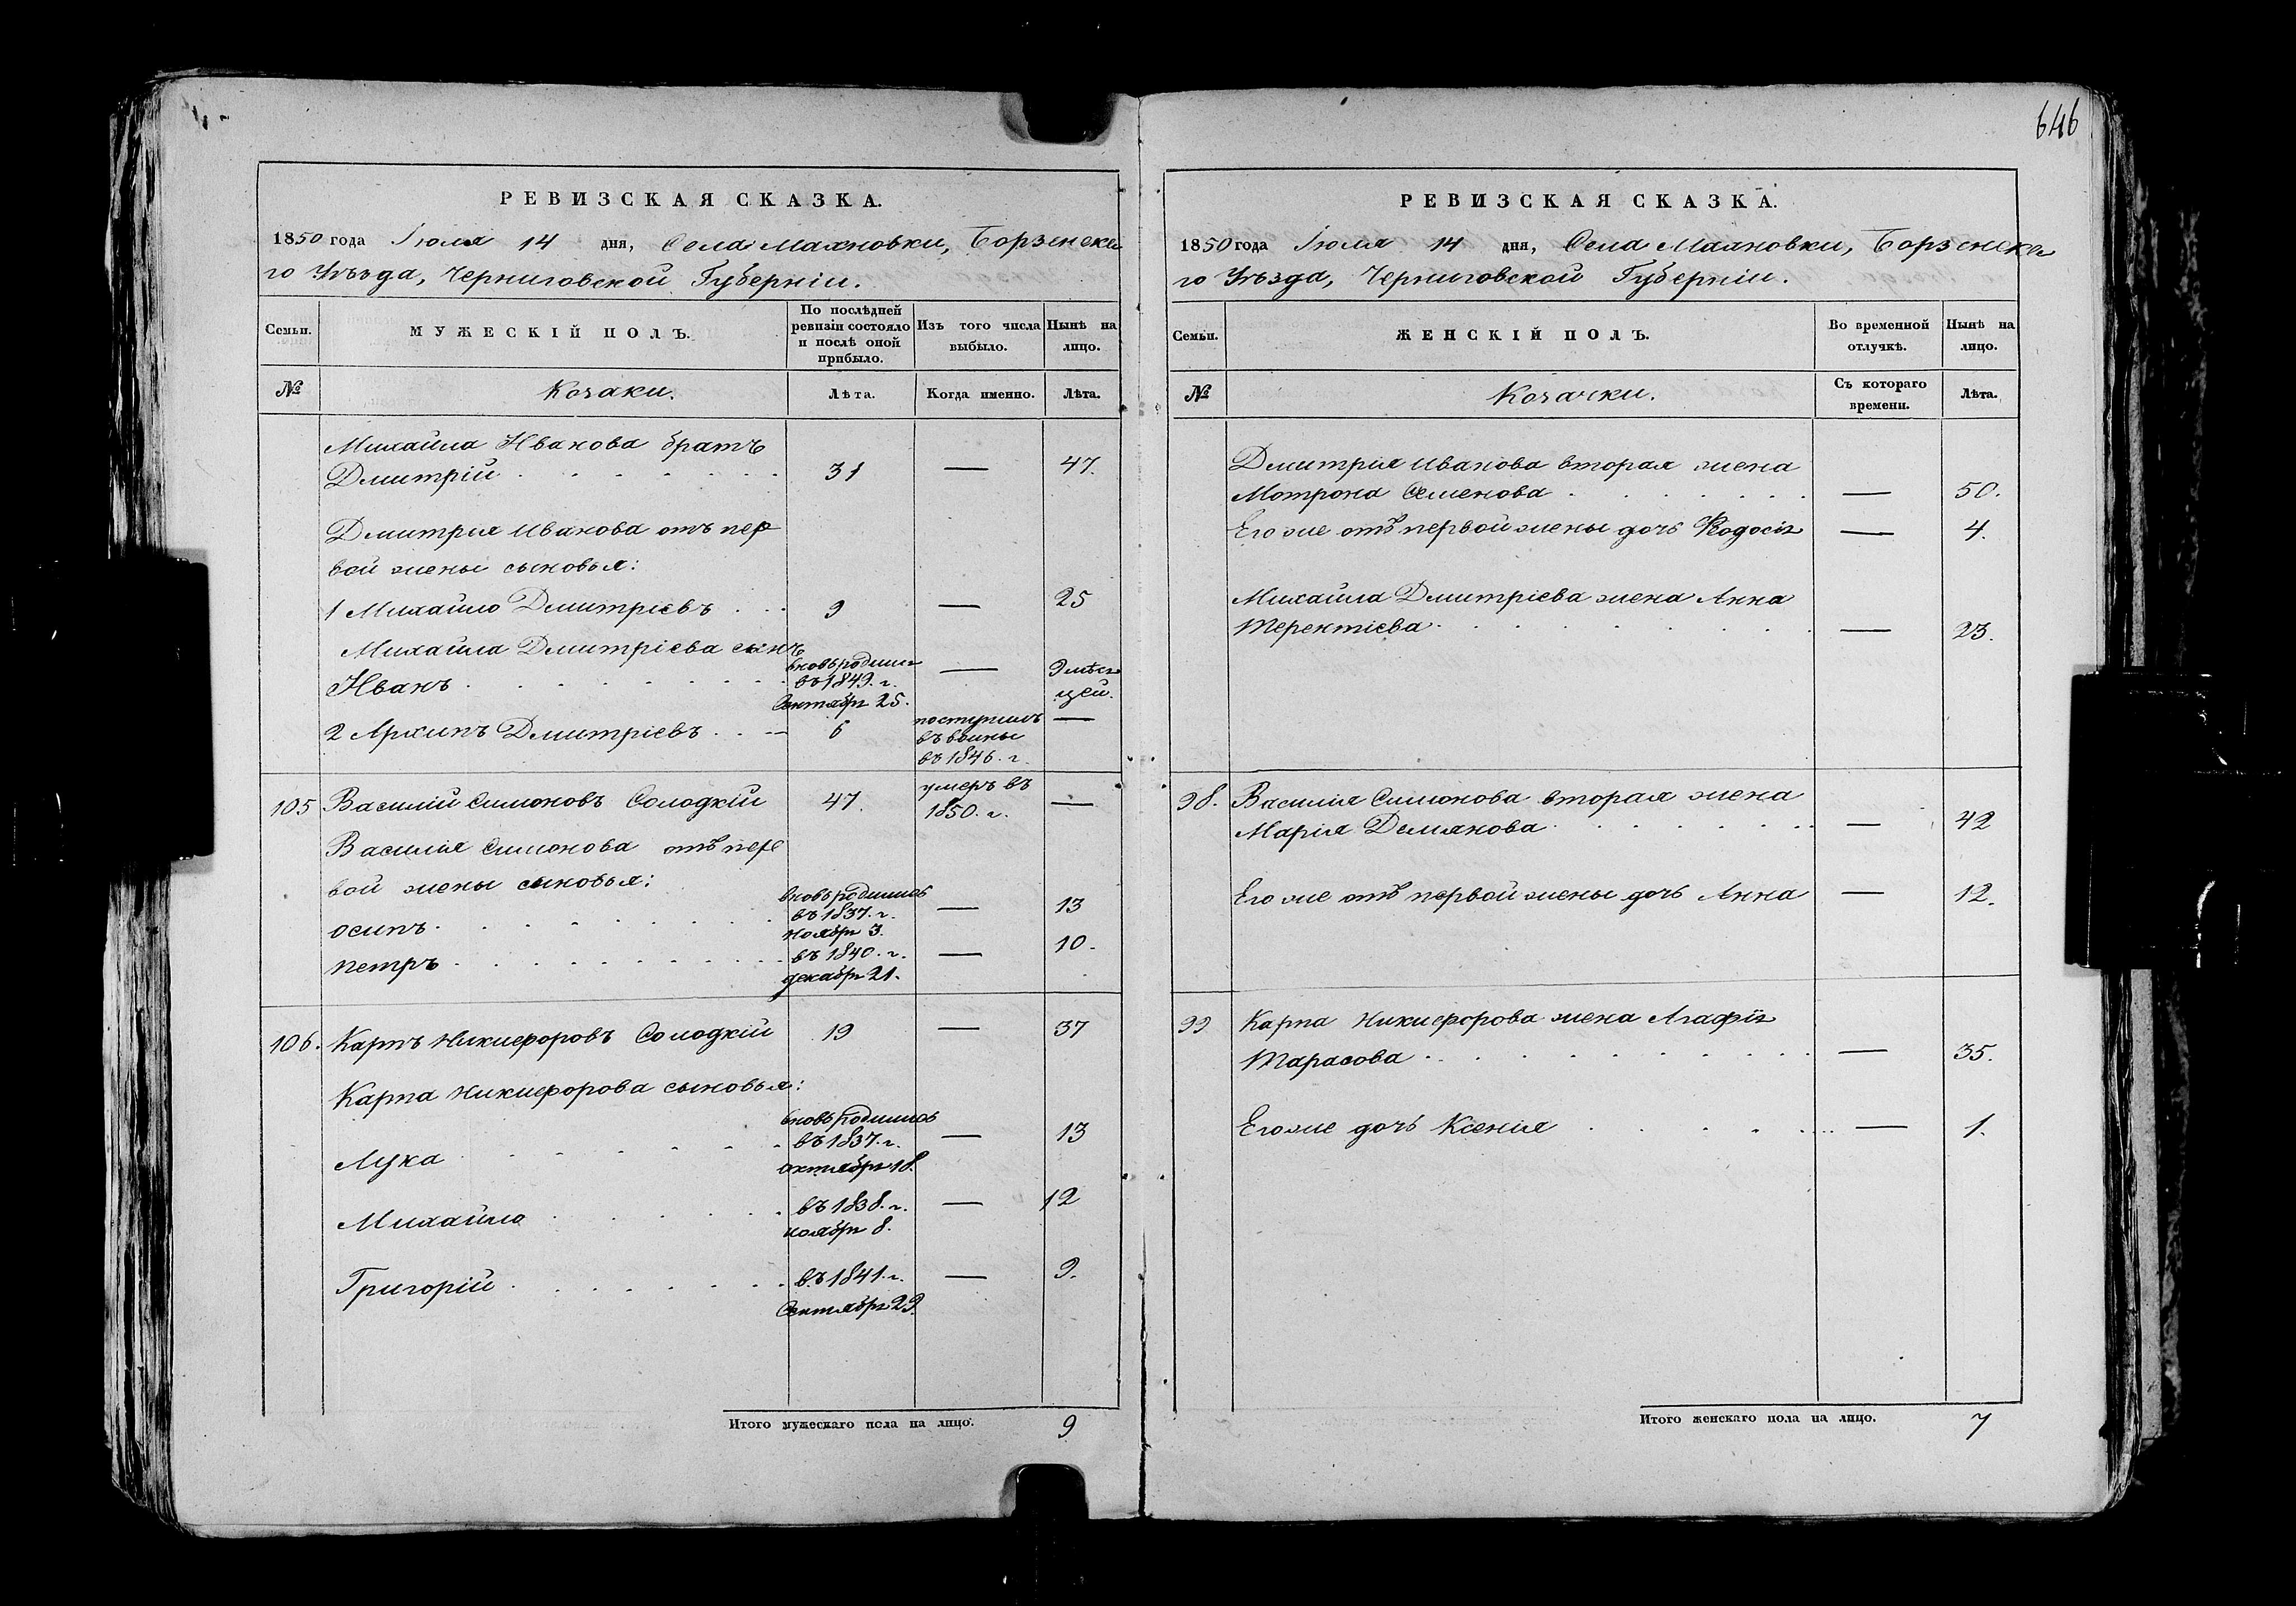 646
РЕВИЗСКАЯ СКАЗКА.
1850 года Іюля 14 дня, Села Маяновки, Борзенска
го Уѣзда, Черниговской Губерніи.
Семьи.
МУЖЕСКІЙ ПОЛЪ.
По послѣдней ревизіи состояло и послѣ оной прибыло.
Изъ того числа выбыло.
Нынѣ на лицо.
№
Козаки.
Лѣта.
Когда именно.
Лѣта.
Михайла Иванова братъ
Дмитрій 31 — 47.
Дмитрия Иванова отъ пер
вой жены сыновья:
1 Михайло Дмитріевъ 9 — 25
Михайла Дмитріева сынъ
Иванъ вновь родился въ 1849. г. Сентября 25. — 9 мѣся цей.
2 Архипъ Дмитріевъ 6 поступилъ въ воины въ 1846. г. —
105 Василій Симоновъ Солодкій 47. умеръ въ 1850. г. —
Василія Симонова отъ пер
вой жены сыновья:
Осипъ вновь родились въ 1837. г. Ноября 3. — 13
Петръ въ 1840. г. декабря 21. — 10.
106. Карпъ Никифоровъ Солодкій 19 — 37
Карпа Никифорова сыновья:
Лука вновь родились въ 1837. г. октября 18. — 13
Михайло въ 1838. г. ноября 8. — 12
Григорій въ 1841. г. Сентября 29. — 9.
Итого мужескаго пола на лицо. 9
РЕВИЗСКАЯ СКАЗКА.
1850 года Іюля 14 дня, Села Маяновки, Борзенска
го Уѣзда, Черниговской Губерніи.
Семьи.
ЖЕНСКІЙ ПОЛЪ.
Во временной отлучкѣ.
Нынѣ на лицо.
№
Козачки.
Съ котораго времени.
Лѣта.
Дмитрия Иванова вторая жена
Мотрона Семенова — 50.
Его же отъ первой жены дочь Феодосія — 4.
Михайла Дмитріева жена Анна
Терентіева — 23.
98. Василія Симонова вторая жена
Марія Демянова — 42
Его же отъ первой жены дочь Анна — 12.
99 Карпа Никифорова жена Агафія
Тарасова — 35.
Его же дочь Ксенія — 1.
Итого женскаго пола на лицо. 7